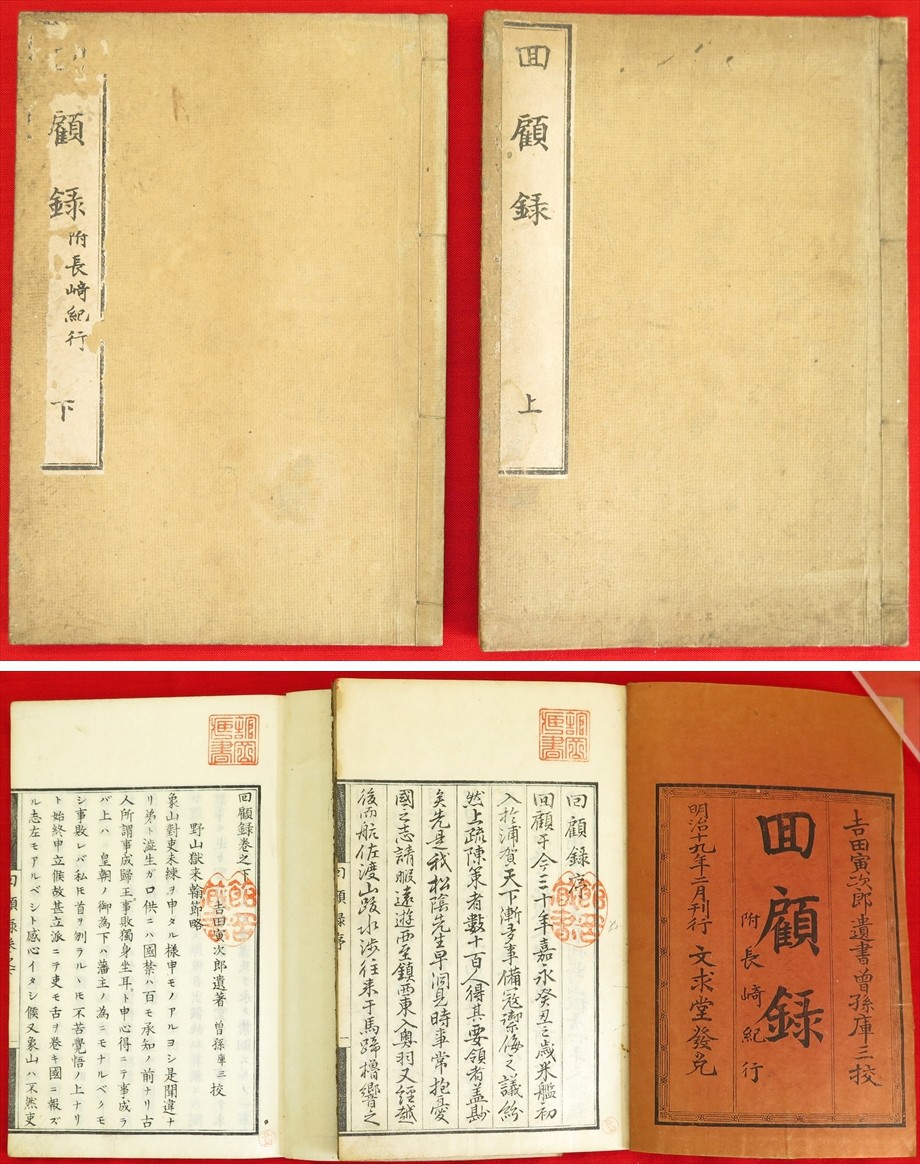 回顧録
上
顧録
附長﨑紀行
下
吉田寅次郎遺書曽孫庫三校
回顧録
附長﨑紀行
明治十九年二月刊行 文求堂發兌
回顧録序
回顧于今三十年嘉永癸丑之歳米艦初
入於浦賀天下漸多事備冦禦侮之議紛
然上疏陳策者數十百人得其要領者盖尠
矣先是我松陰先生早洞見時事常抱憂
國之志請暇遠遊西至鎮西東入奥羽又經越
後而航佐渡山跋水渉往来于馬蹄櫓響之
回顧録序
一
回顧録巻之下
吉田寅次郎遺著 曽孫庫三校
野山獄来翰節略
象山對吏未練ヲ申タル様申モノアルヨシ是聞違ナ
リ弟ト澁生ガロ供ニハ國禁ハ百モ承知ノ前ナリ古
人所謂事成歸王事敗獨身坐耳ト申心得ニテ事成ラ
バ上ハ 皇朝ノ御為下ハ藩主ノ為ニモナルベクモ
シ事敗レバ私𪜈首ヲ刎ラルヽ𪜈不苦覺悟ノ上ナリ
ト始終申立候故甚立派ニテ吏モ舌ヲ巻キ國ニ報ズ
ル志左モアルベシト感心イタシ候又象山ハ不然吏